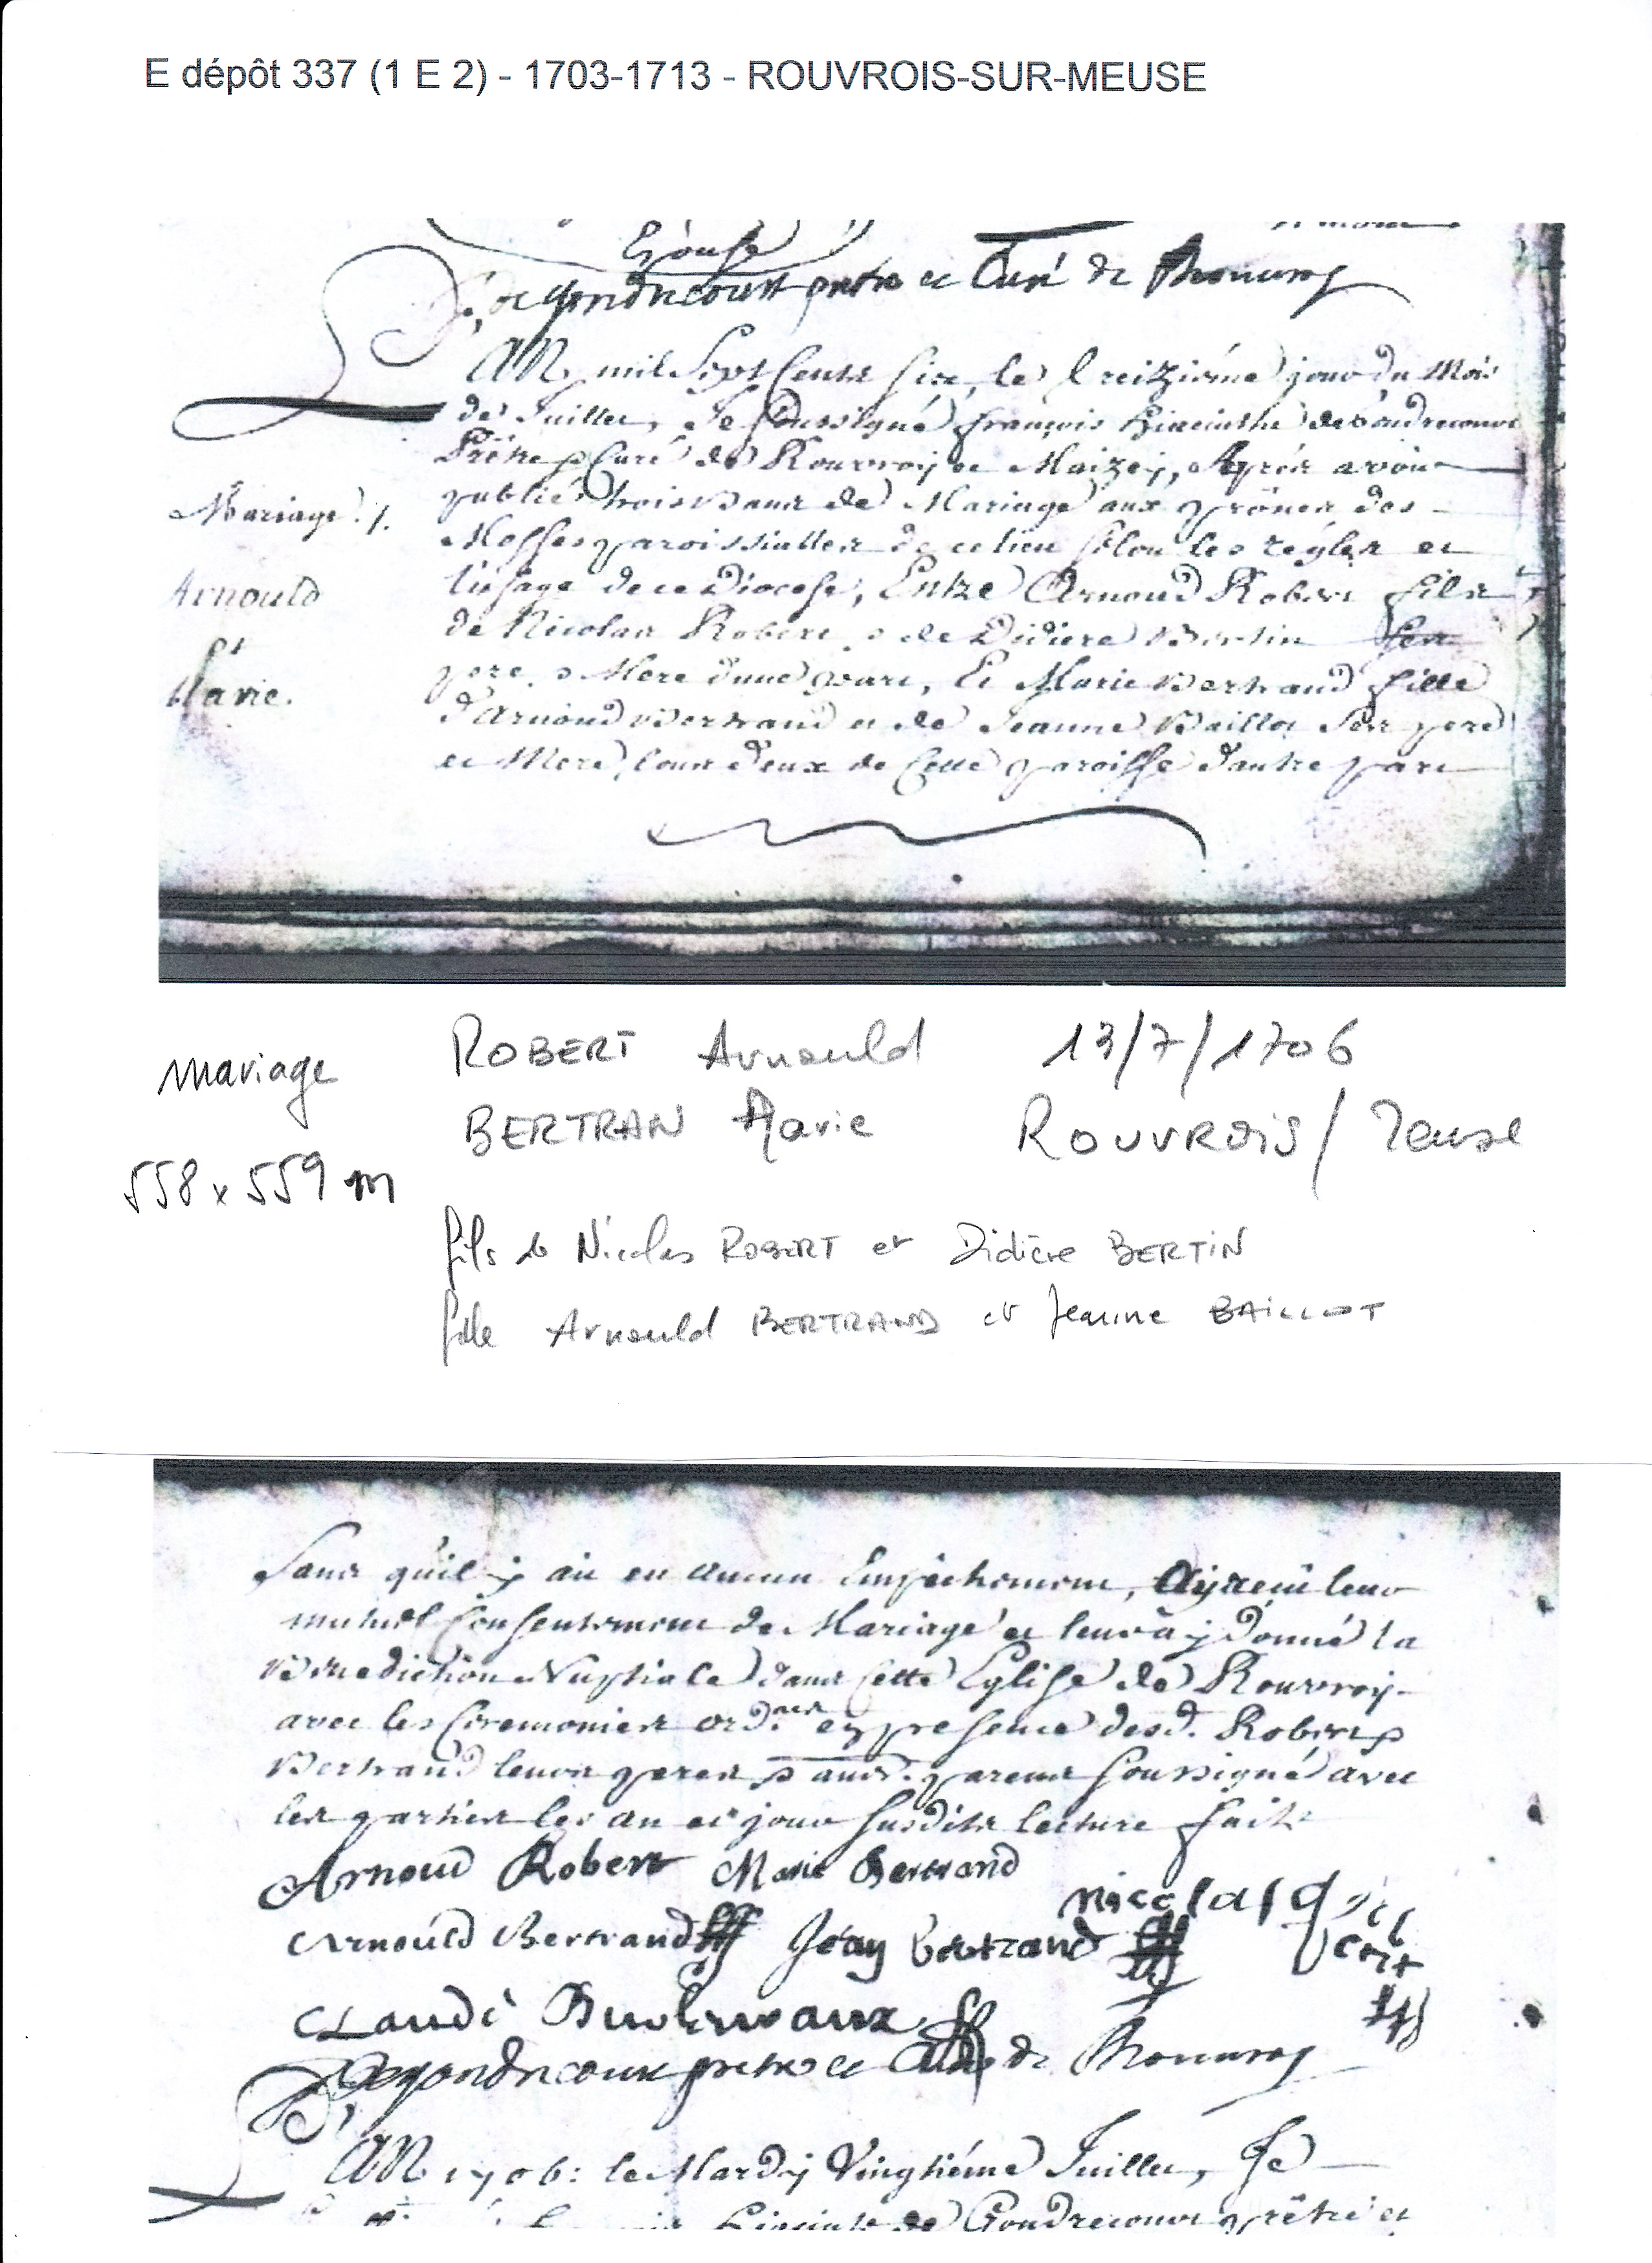 E dépôt 337 (1 E 2) - 1703-1713 - ROUVROIS-SUR-MEUSE
Epouse
de gondrecourt pretre et Curé de Rouuroy
L'AN mil Sept Cents six, le treizième jour du Mois
de Juillet, Je soussigné françois hiacinthe de Gondrecourt
Prêtre Curé de Rouvroy et Maizey, Après avoir
publié trois bans de Mariage aux prônes des
Messes paroissialles de ce lieu selon les régles et
l'usage de ce Diocese, Entre Arnoud Robert fils
de Nicolas Robert & de Didiere Bertin ses
pere & Mere d'une part, Et Marie Bertrand fille
d'Arnoud Bertrand et de Jeanne Baillot ses pere
et Mere, tous deux de Cette paroisse d'autre part
Mariage
Arnould
et
Marie.
mariage ROBERT Arnould 13/7/1706
BERTRAN Marie ROUVROIS / Meuse
558 x 559 m
fils de Nicolas ROBERT et Didière BERTIN
fille Arnould BERTRAND et Jeanne BAILLOT
Sans qu'il y ait eu aucun Empêchement, Ay receu leur
mutuel Consentement de Mariage et leur ay donné la
Benediction Nuptiale dans Cette Eglise de Rouvroy
avec les Ceremonies ord.res en presence desd. Robert &
Bertrand leurs peres & aut. parens soussigné avec
les parties les an et jour susdits lecture faite
Arnoud Robert Marie Bertrand
nicolas
Arnould Bertrand Jean bertrand
Claude
Degondrecourt pretre et Curé de Rouuroy
L'AN 1706: le Mardy Vingtiéme Juillet, Je
hiacinthe de Gondrecourt prêtre et